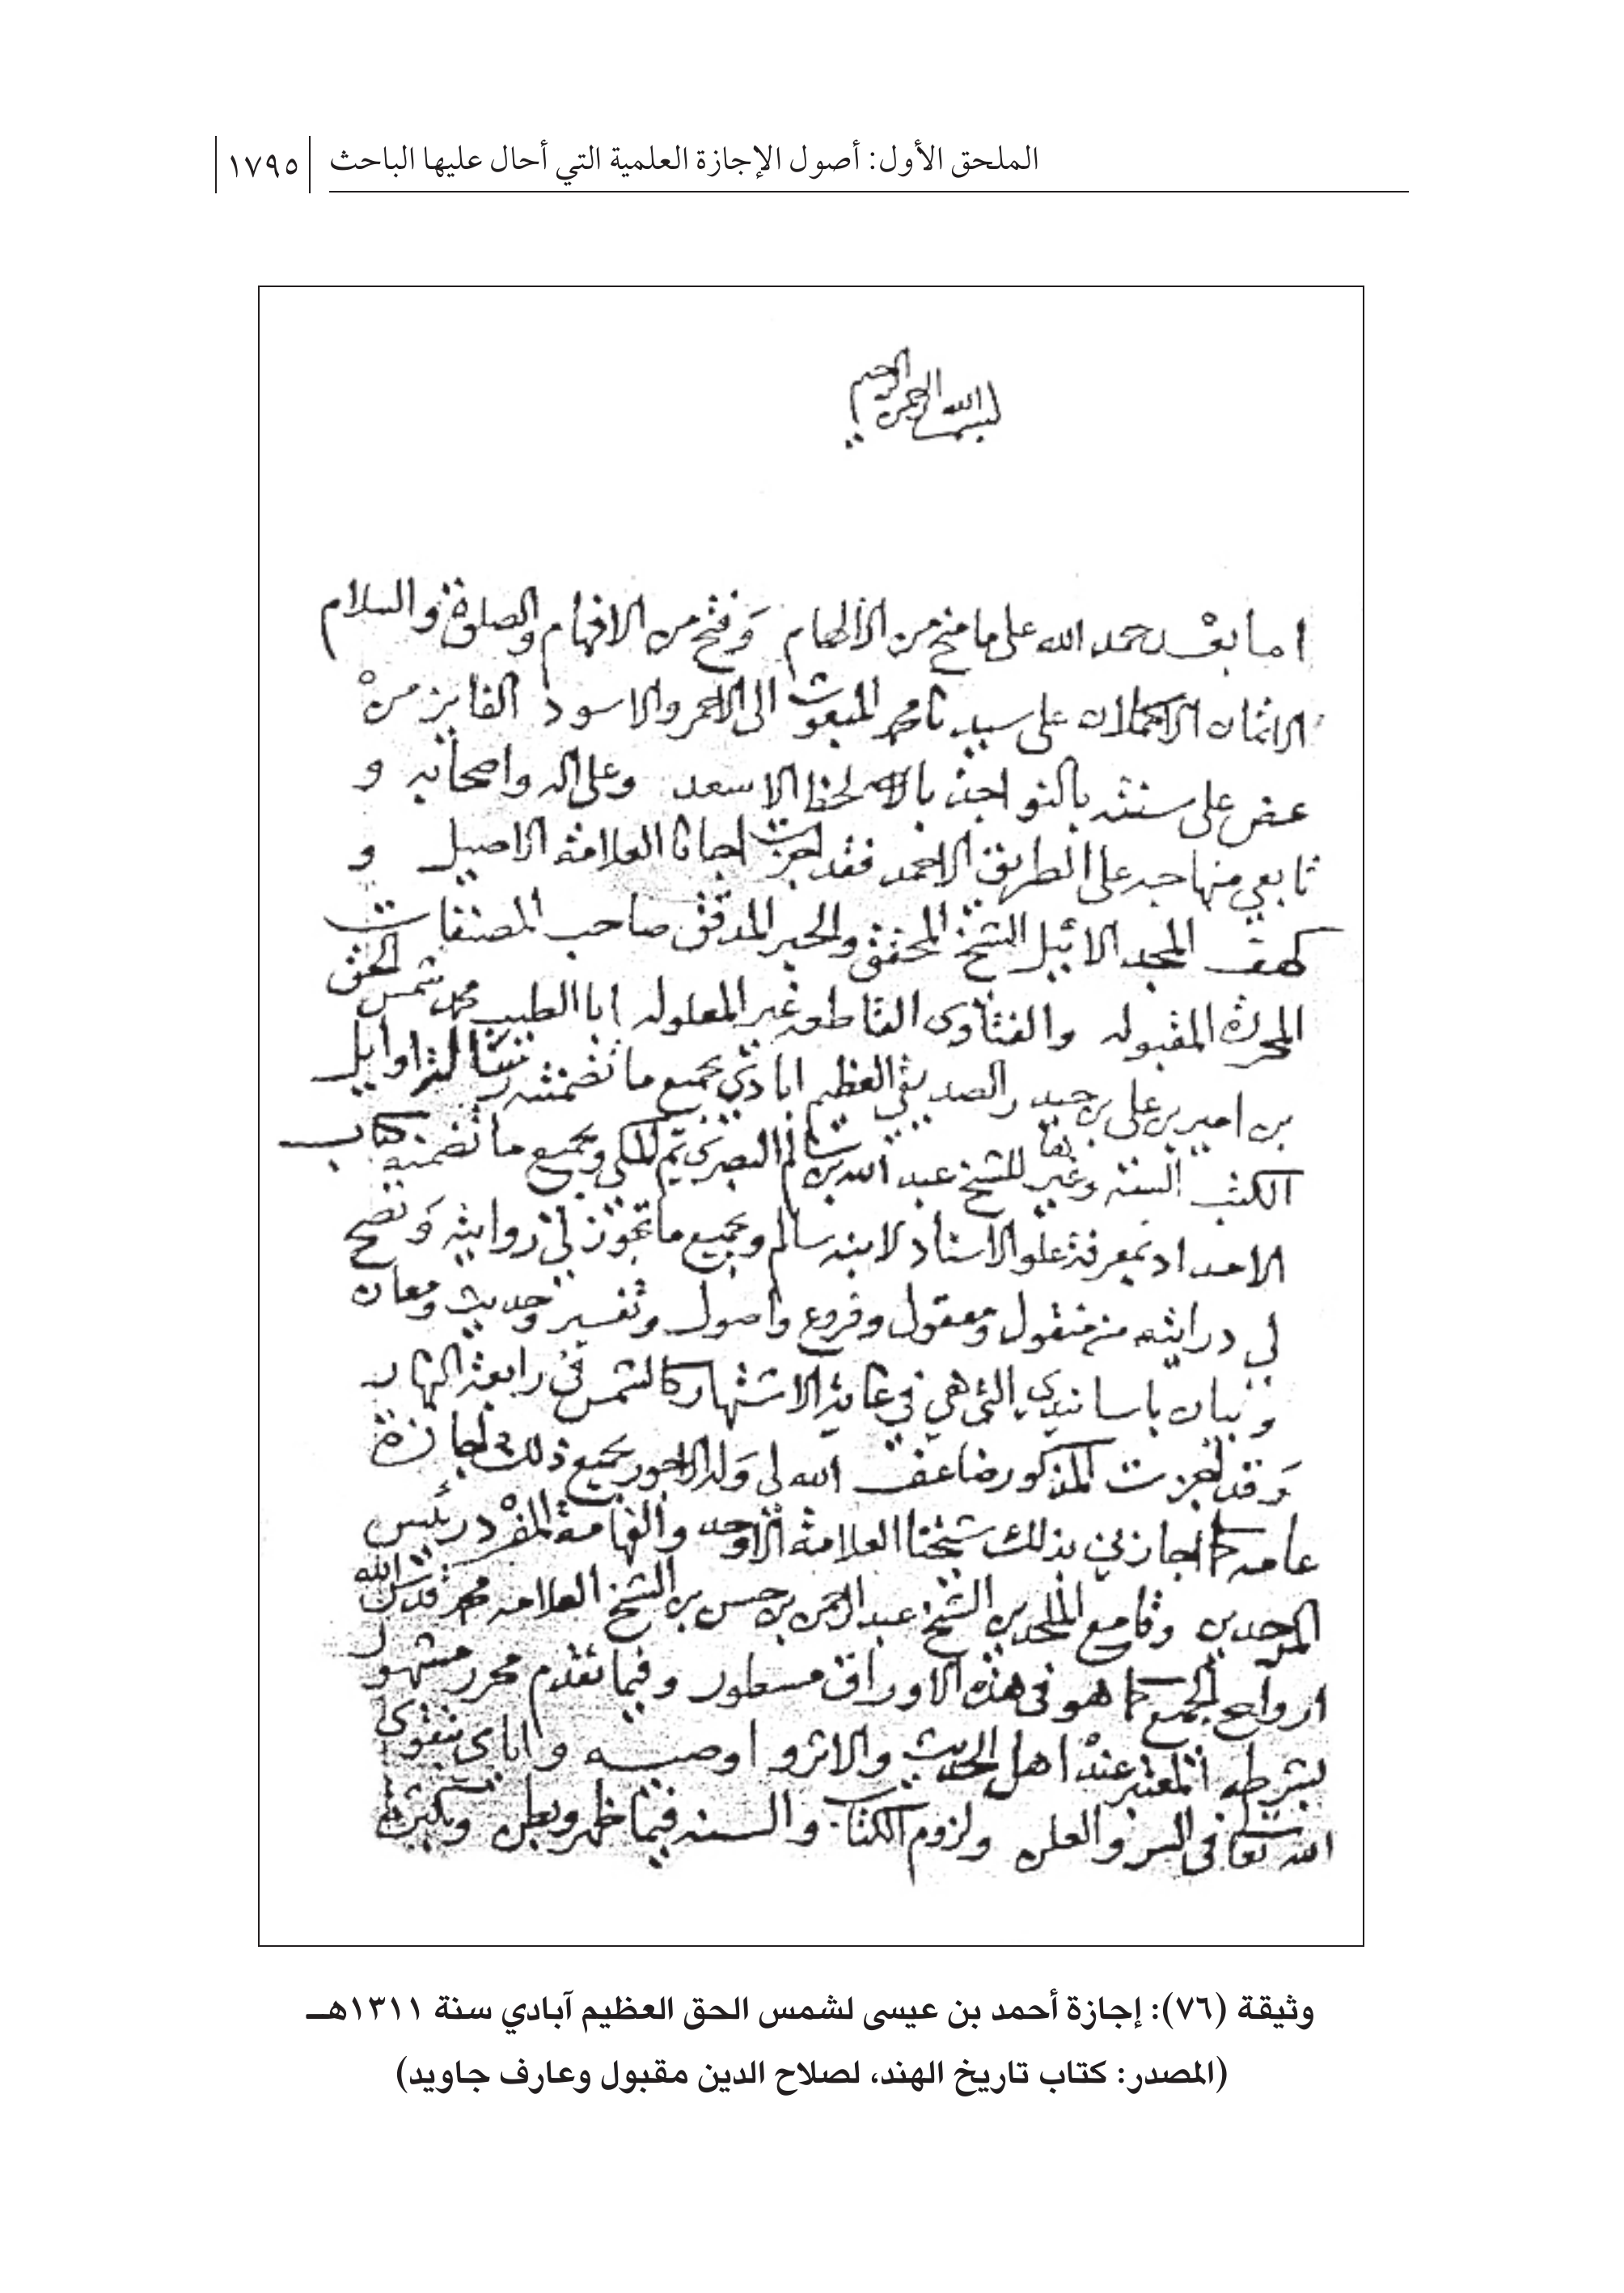 الملحق الأول: أصول الإجازة العلمية التي أحال عليها الباحث ١٧٩٥
بسم الله الرحمن الرحيم
اما بعد حمد الله على ما منح من الالهام وفتح من الافهام والصلوة والسلام
الاتمان الاكملان على سيدنا محمد المبعوث الى الاحمر والاسود الفايز من
عض على سنته بالنواجذ بالحظ الاسعد وعلى اله واصحابه و
تابعي منهاجه على الطريق الاحمد فقد اجزت اخانا العلامة الاصيل و
كهف المجد الاثيل الشيخ المحقق والحبر المدقق صاحب المصنفات
المحررة المقبوله والفتاوى القاطعه غير المعلوله ابا الطيب محمد شمس الحق
بن امير بن علي بن حيدر الصديقي العظيم ابادي بجميع ما تضمنته اوايل
الكتب الستة وغيرها للشيخ عبد الله بن سالم البصري ثم المكي وبجميع ما تضمنه كتاب
الامداد بمعرفة علو الاسناد لابنه سالم وبجميع ما تجوز لي روايته وتصح
لي درايته من منقول ومعقول وفروع واصول وتفسير وحديث ومعان
وبيان باسانيدي التي هي في غاية الاشتهار كالشمس في رابعة النهار
وقد اجزت المذكور ضاعف الله لي وله الاجور بجميع ذلك اجازة
عامه كما اجازني بذلك شيخنا العلامة الاوحد والفهامة المفرد رئيس
الموحدين وقامع الملحدين الشيخ عبد الرحمن بن حسن بن الشيخ العلامه محمد قدس الله
ارواح الجميع كما هو في هذه الاوراق مسطور وفيما تقدم محرر مشهور
بشرطه المعتبر عند اهل الحديث والاثر و اوصيه واياي بتقوى
الله تعالى في السر والعلن ولزوم الكتاب والسنه فيما ظهر وبطن
وثيقة (٧٦): إجازة أحمد بن عيسى لشمس الحق العظيم آبادي سنة ١٣١١هـ
(المصدر: كتاب تاريخ الهند، لصلاح الدين مقبول وعارف جاويد)